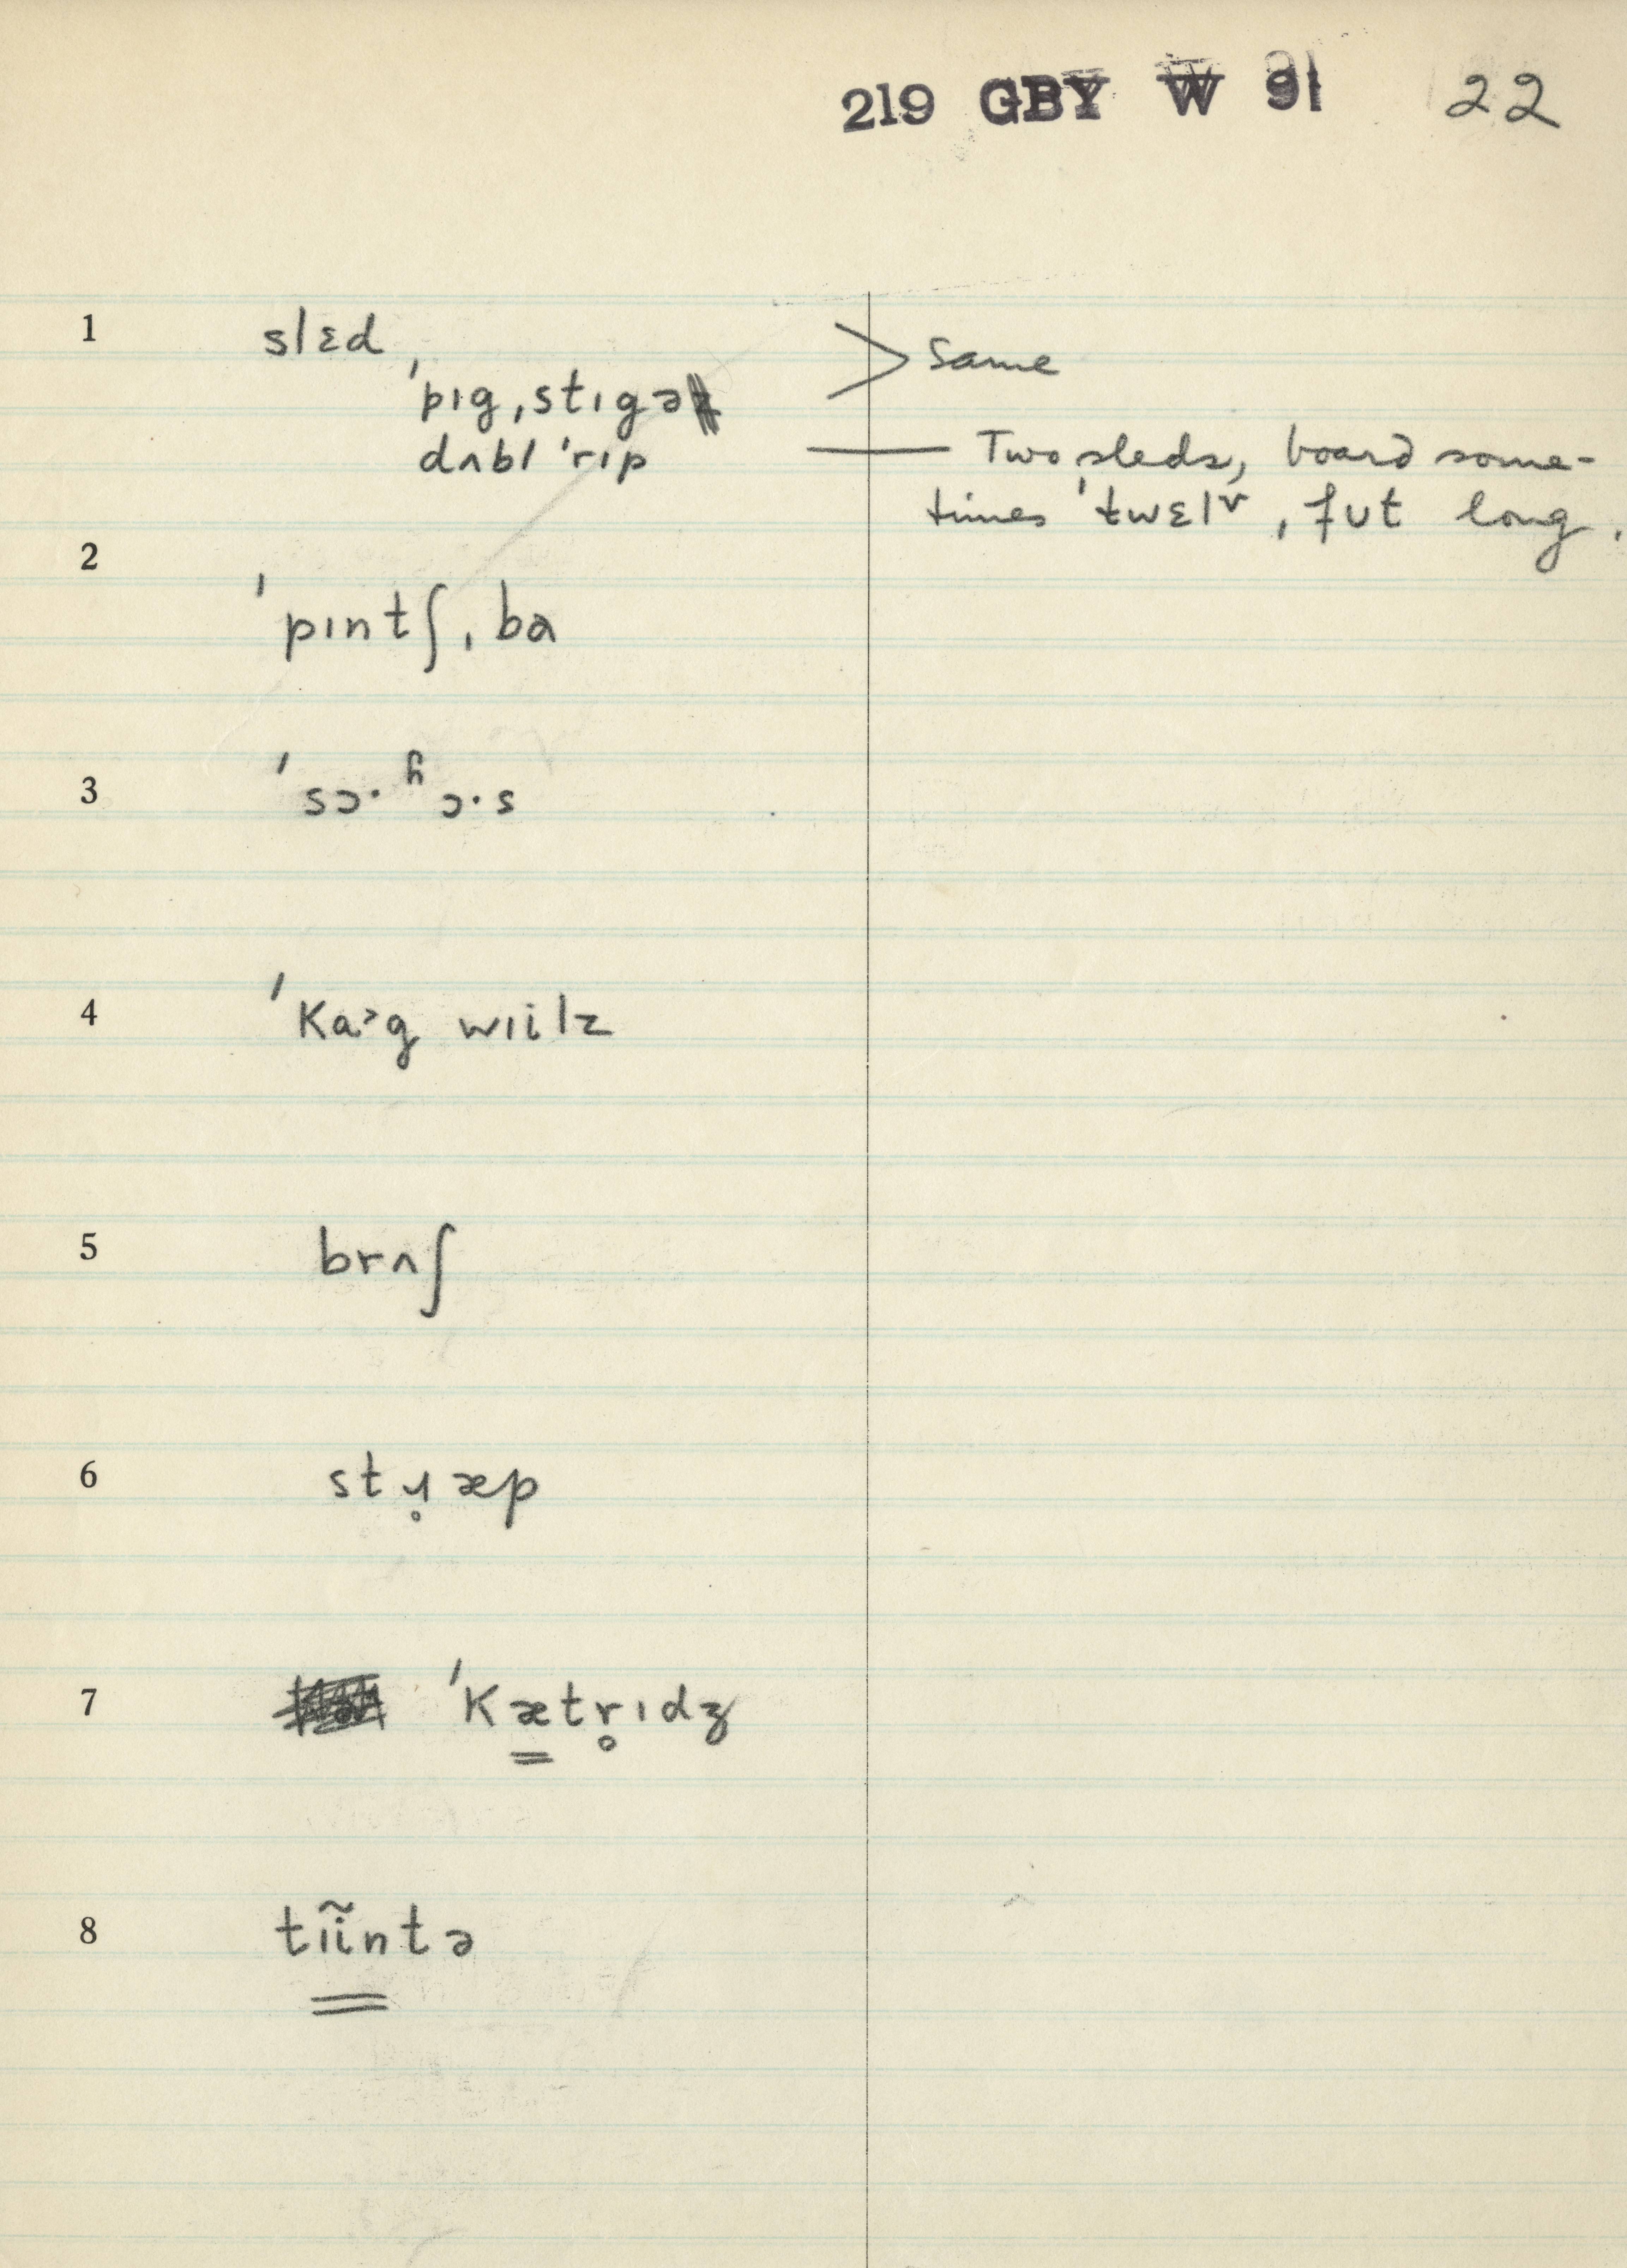 219 GBY W 91 22
1 slɛd > Same
ˈpɪgˌstɪgə
dʌbl ˈrɪp — Two sleds, board some-
times ˈtwɛlvˌfʊt long.
2
ˈpɪntʃˌba
3 ˈsɔ·ʱɔ·s
4 ˈKa>g wɪilz
5 brʌʃ
6 stɹ̥æp
7 ˈKæ̳tr̥ɪdʒ
8 tɪĩntə